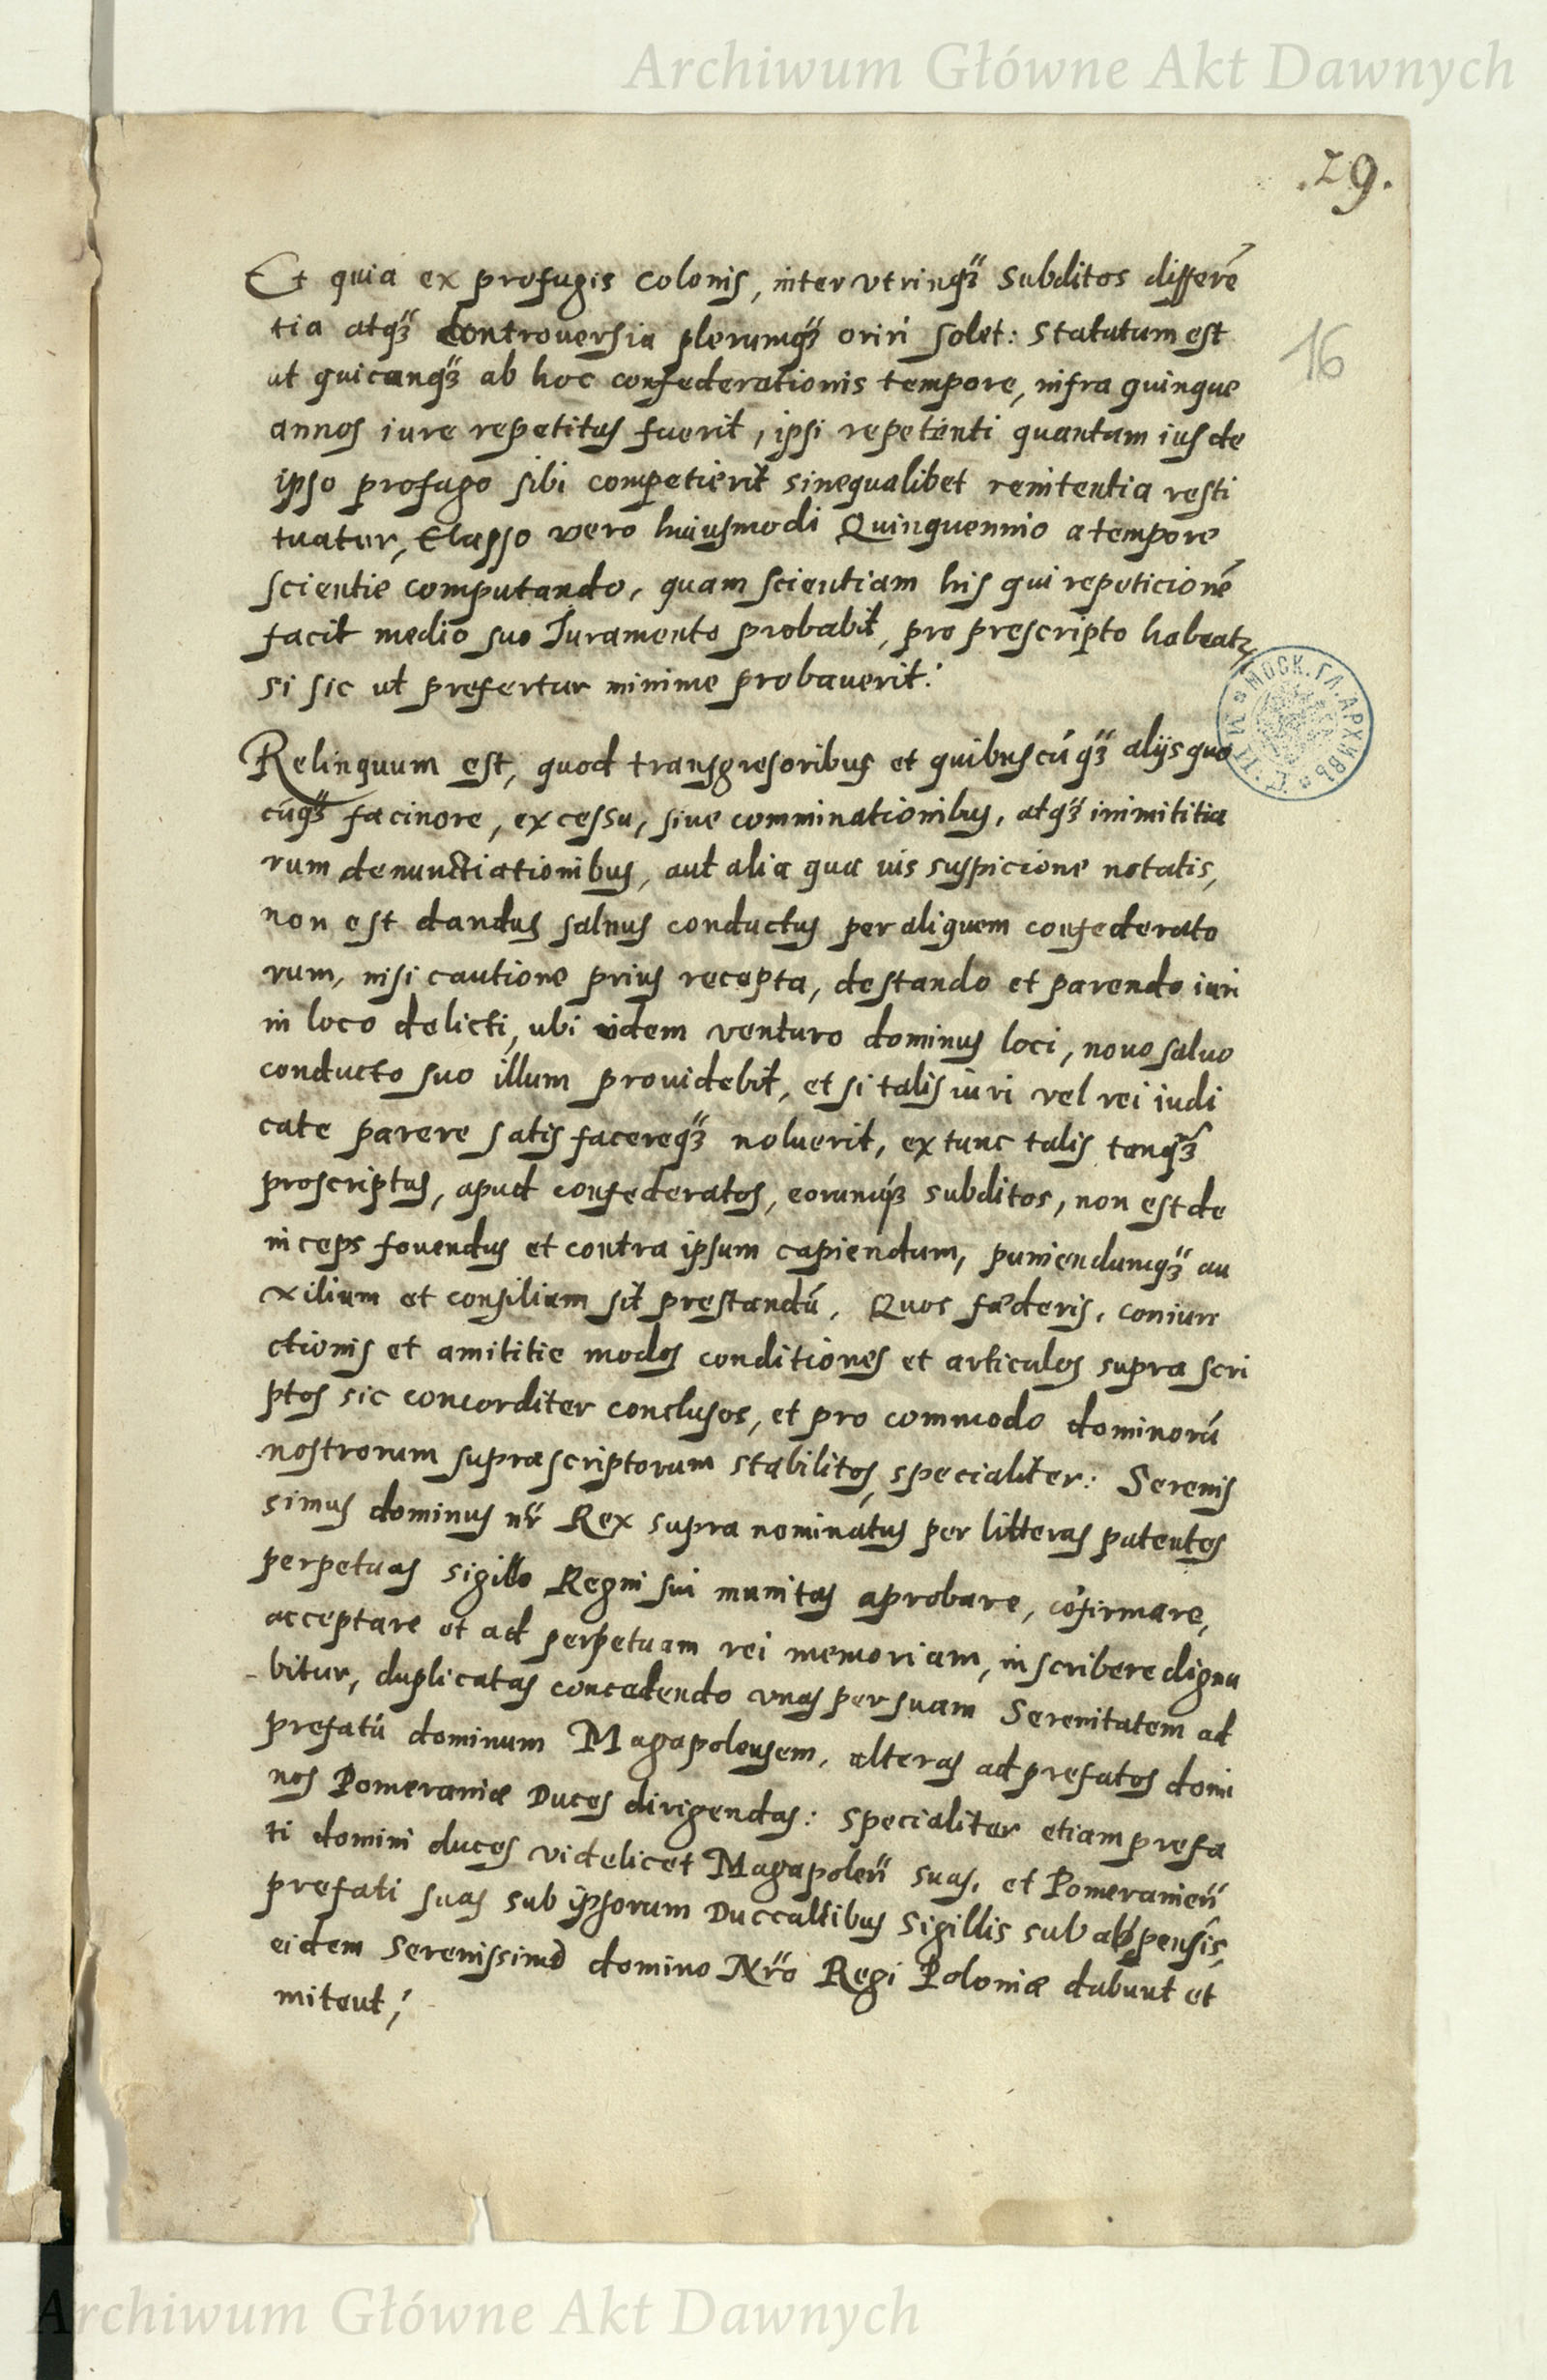 Archiwum Główne Akt Dawnych
.29.
16
Et quia ex profugis colonis, inter vtrinqȝ subditos differē
tia atqȝ controuersia plerumqȝ oriri solet: Statutum est
ut quicunqȝ ab hoc confederationis tempore, infra quinque
annos iure repetitus fuerit, ipsi repetenti quantum ius de
ipso profugo sibi competierit sinequalibet renitentia resti
tuatur, Elapso vero huiusmodi Quinquennio a tempore
scientie computando, quam scientiam his qui repeticionē
facit medio suo Iuramento probabit, pro prescripto habeatȝ
si sic ut prefertur minime probauerit.
Relinquum est, quod transgresoribus et quibuscūqȝ alijs quo
cūqȝ facinore, excessu, siue comminationibus, atqȝ inimititia
rum denunctiationibus, aut alia qua uis suspicione notatis,
non est dandus saluus conductus per aliquem confederato
rum, nisi cautione prius recepta, de stando et parendo iuri
in loco delicti, ubi idem venturo dominus loci, nouo saluo
conducto suo illum prouidebit, et si talis iuri vel rei iudi
cate parere satis facereqȝ noluerit, ex tunc talis tanqȝ
proscriptus, apud confederatos, eorumqȝ subditos, non est de
inceps fouendus et contra ipsum capiendum, puniendumqȝ au
xilium et consilium sit prestandū. Quos fæderis, coniun
ctionis et amititie modos conditiones et articulos supra scri
ptos sic concorditer conclusos, et pro commodo dominorū
nostrorum suprascriptorum stabilitos, specialiter: Serenis
simus dominus nr̄ Rex supra nominatus per litteras patentes
perpetuas sigillo Regni sui munitas aprobare, cōfirmare,
acceptare et ad perpetuam rei memoriam, in scribere digna
bitur, duplicatas concedendo vnas per suam Serenitatem ad
prefatū dominum Magapolensem, alteras ad prefatos domi
nos Pomeraniæ Duces dirigendas: specialiter etiam prefa
ti domini duces videlicet Magapoleñ suas, et Pomeranieñ
prefati suas sub ipsorum Duccalibus Sigillis sub appensis,
eidem Serenissimo domino Nr̄o Regi Poloniæ dabunt et
mitent;
МОСК. ГЛ. АРХИВЪ
Archiwum Główne Akt Dawnych